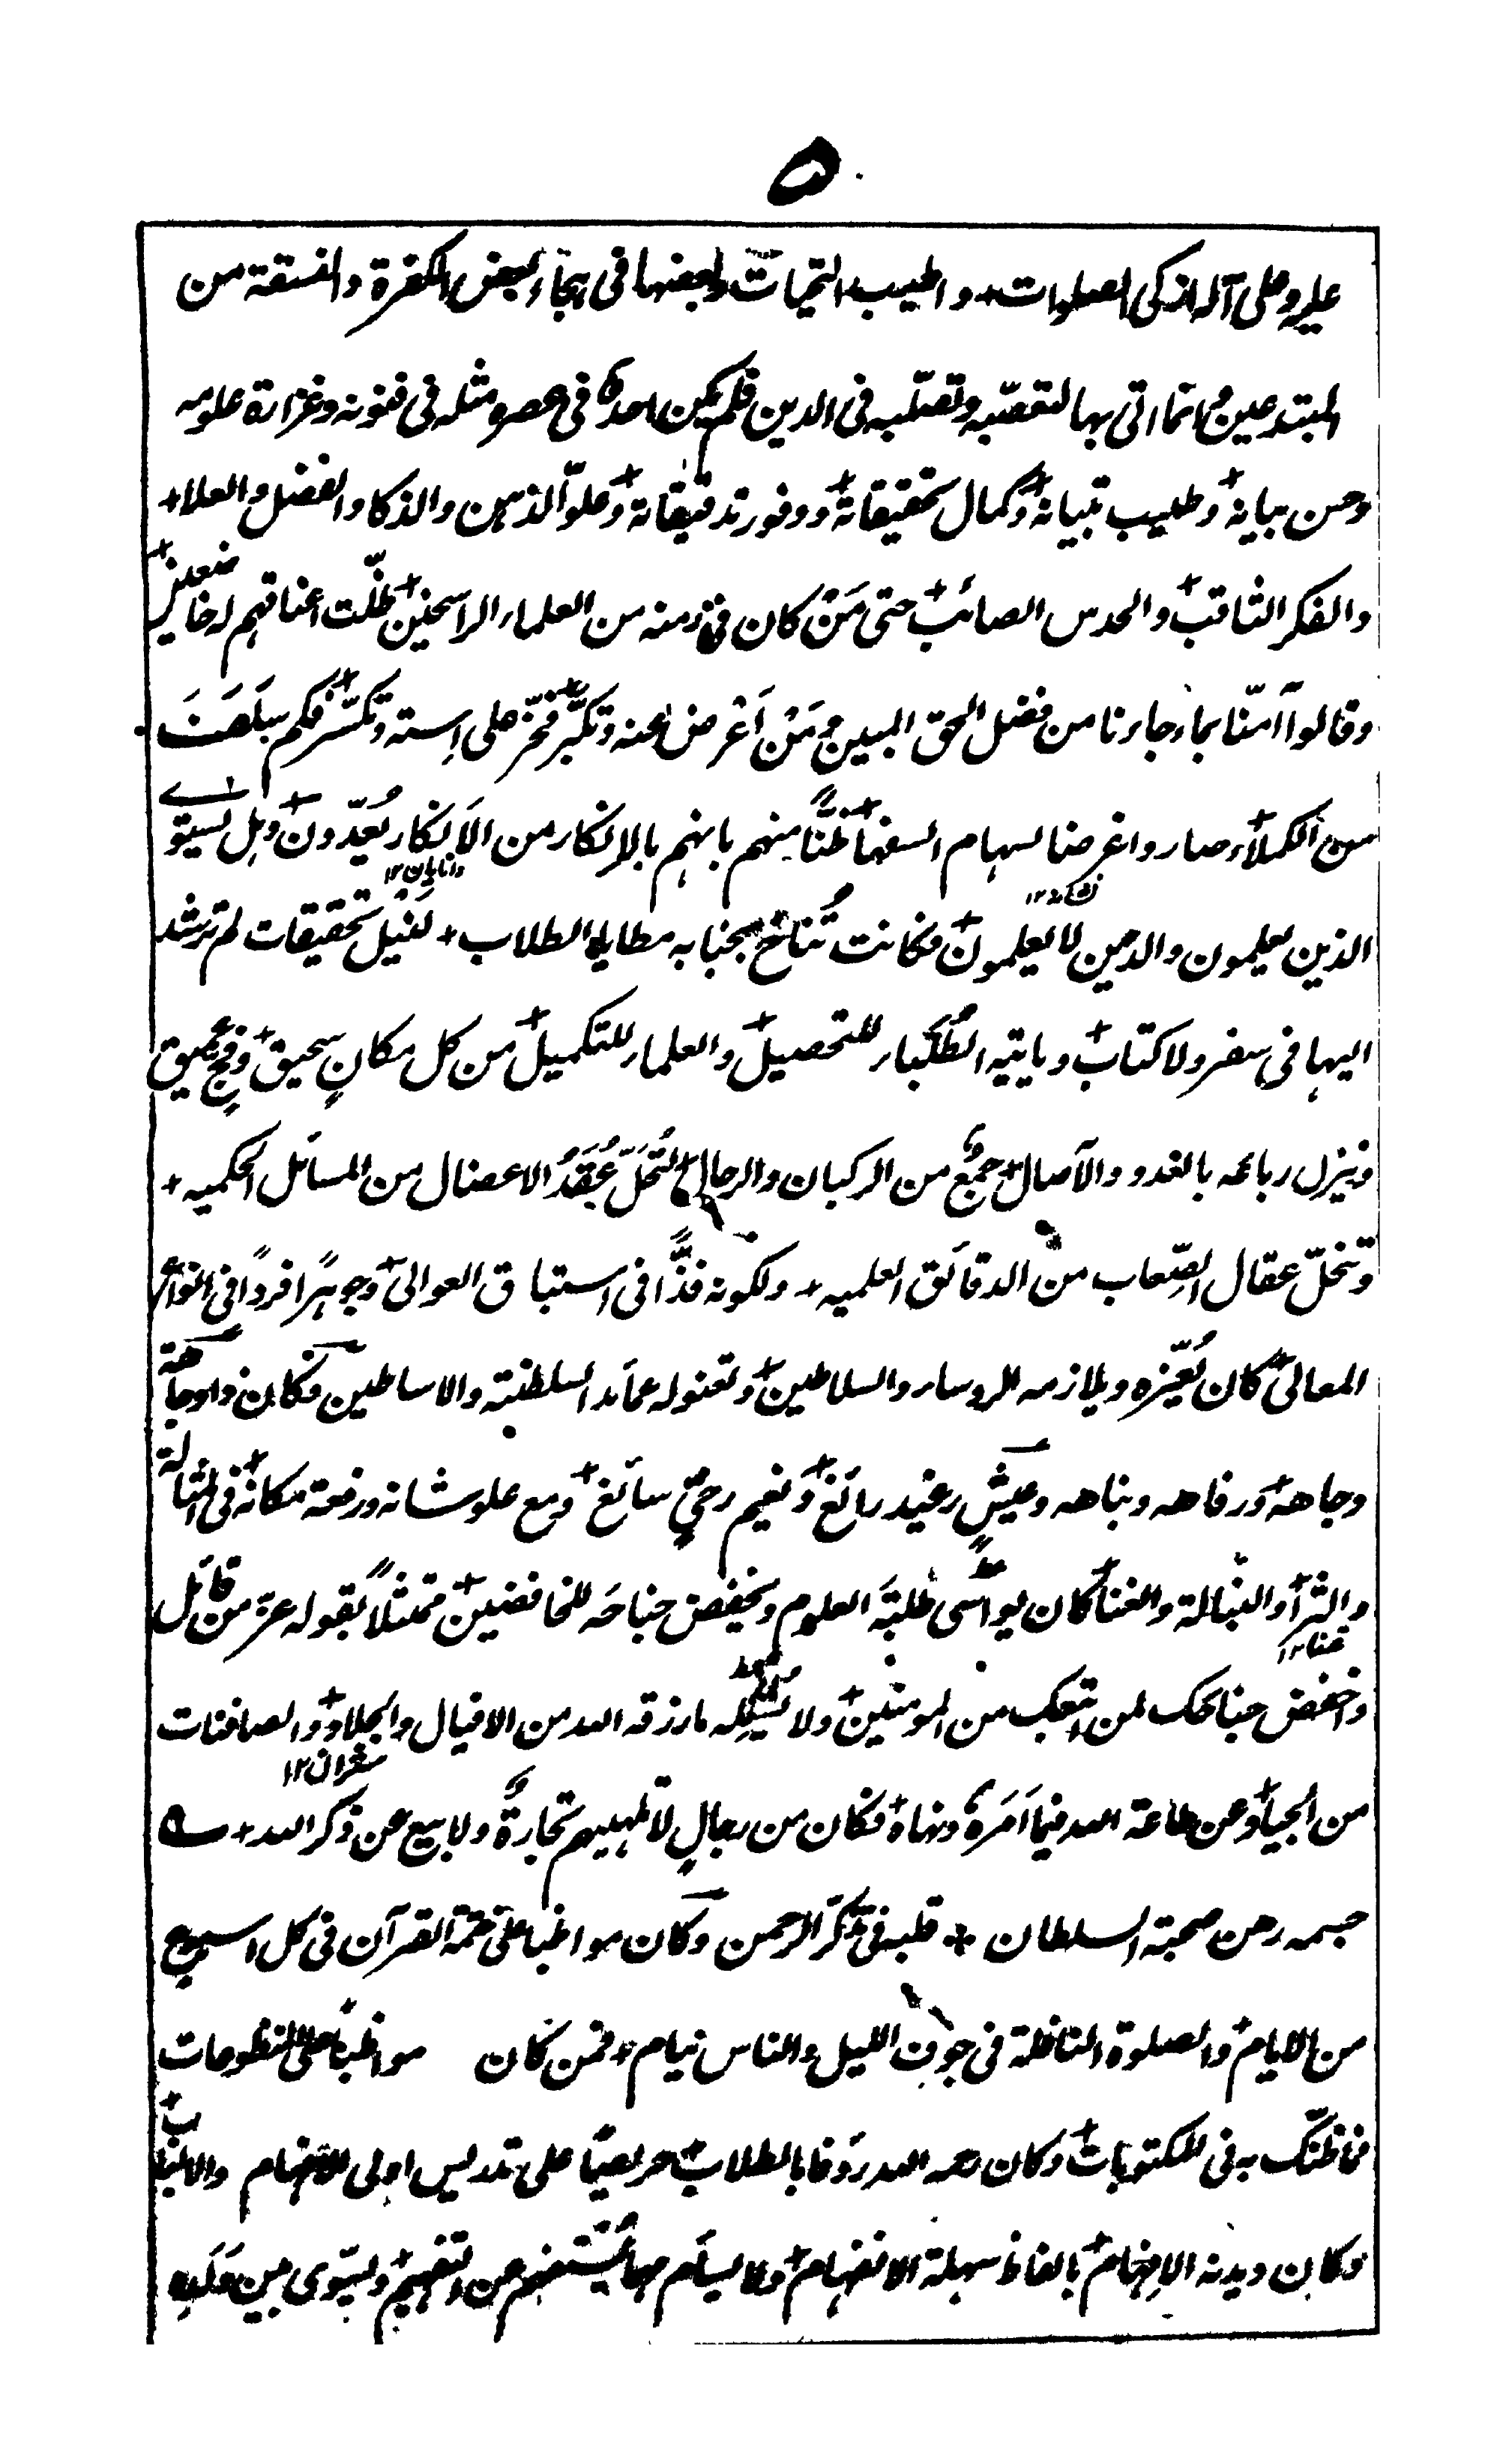 ٥
عليه وعلى آله ازكى الصلوات+ واطيب التحيات وبعضها فى هجاء بعض الكفرة والفسقة من
المبتدعين وانما اتى بها لتعصّبه وتصلّبه فى الدين فلم يكن احدٌ فى عصره مثله فى فنونه وغزارة علومه
وحسن بيانه+ وطيب تبيانه+ وكمال تحقيقاته+ ووفور تدقيقاته+ وعلوّ الذهن والذكا والفضل والعلا+
والفكر الثاقب+ والحدس الصائب+ حتى مَنْ كان فى زمنه من العلماء الراسخين+ ظلّت اعناقهم له خاضعين+
وقالوا آمنّا بما جاءنا من فضل الحق المبين ومَنْ اَعْرض عنه وتكبّر+ فخرّ على اِسته وتكسّر+ فكم
من الكملاء صاروا غرضا لسهام السفها+ ظنًّا منهم بانهم بالاِنكار من الاَنكار يُعدّون+ وهل يستوى
الذين يعلمون والذين لا يعلمون+ فكانت تُناخ بجنابه مطايا الطلاب+ لنَيْل تحقيقات لم ترشد
اليها فى سفر ولا كتاب+ وياتيه الطُلَباء للتحصيل+ والعلماء للتكميل+ من كل مكانٍ سحيق+ وفجٍّ عميق
وينزل رباعه بالغدو والآصال+ جمعٌ من الركبان والرجال+ لتُحَلّ عُقَدُ الاعضال من المسائل الحكميه+
وتنحلّ عقال الصِّعاب من الدقائق العلميه+ ولكونه فذًّا فى استباق العوالى+ وجوهرًا فردًا فى انواع
المعالى+ كان يُعزّه ويلازمه الروساء والسلاطين+ وتعنو له عمائد السلطنة والاساطين فكان ذا وجاهة
وجاهه+ ورفاهه ونباهه وعيشٍ رغيد رائغ+ ونعيم رخىٍّ سائغ+ ومع علو شانه ورفعة مكانه+ فى
والثرا+ والنبالة والغنا+ كان يواسى طلبةَ العلوم ويخفض جناحَه للخافضين+ متمثلاً بقوله عزّ من قائل
غنا١٢
واخفض جناحك لمن اتبعك من المومنين+ ولا يُشغله ما رزقه الله من الافيال والجلاد+ والصافنات
شتران١٢
من الجياد+ عن طاعة الله فيما اَمَرهٗ ونهاه+ فكان من رجالٍ لا تلهيهم تجارةٌ ولا بيع عن ذكر الله+
جسمه رهن صحبة السلطان + قلبه فى تذكّر الرحمن وكان مواظبا على ختمة القرآن فى كل اسبوع
من الايام+ والصلوة النافلة فى جوف الليل والناس نيام+ فمن كان مواظبا على المنظومات
فما ظنّك به فى المكتوبات+ وكان رحمه الله رؤفا بالطلاب+ حريصا على تدريس اولى الافهام والالباب+
وكان ديدنه الافهام+ بالفاظ سهلة الانفهام+ ولا يسأم مهما يُستفهم عن التفهيم+ ويسوّى بين وَلَدِه